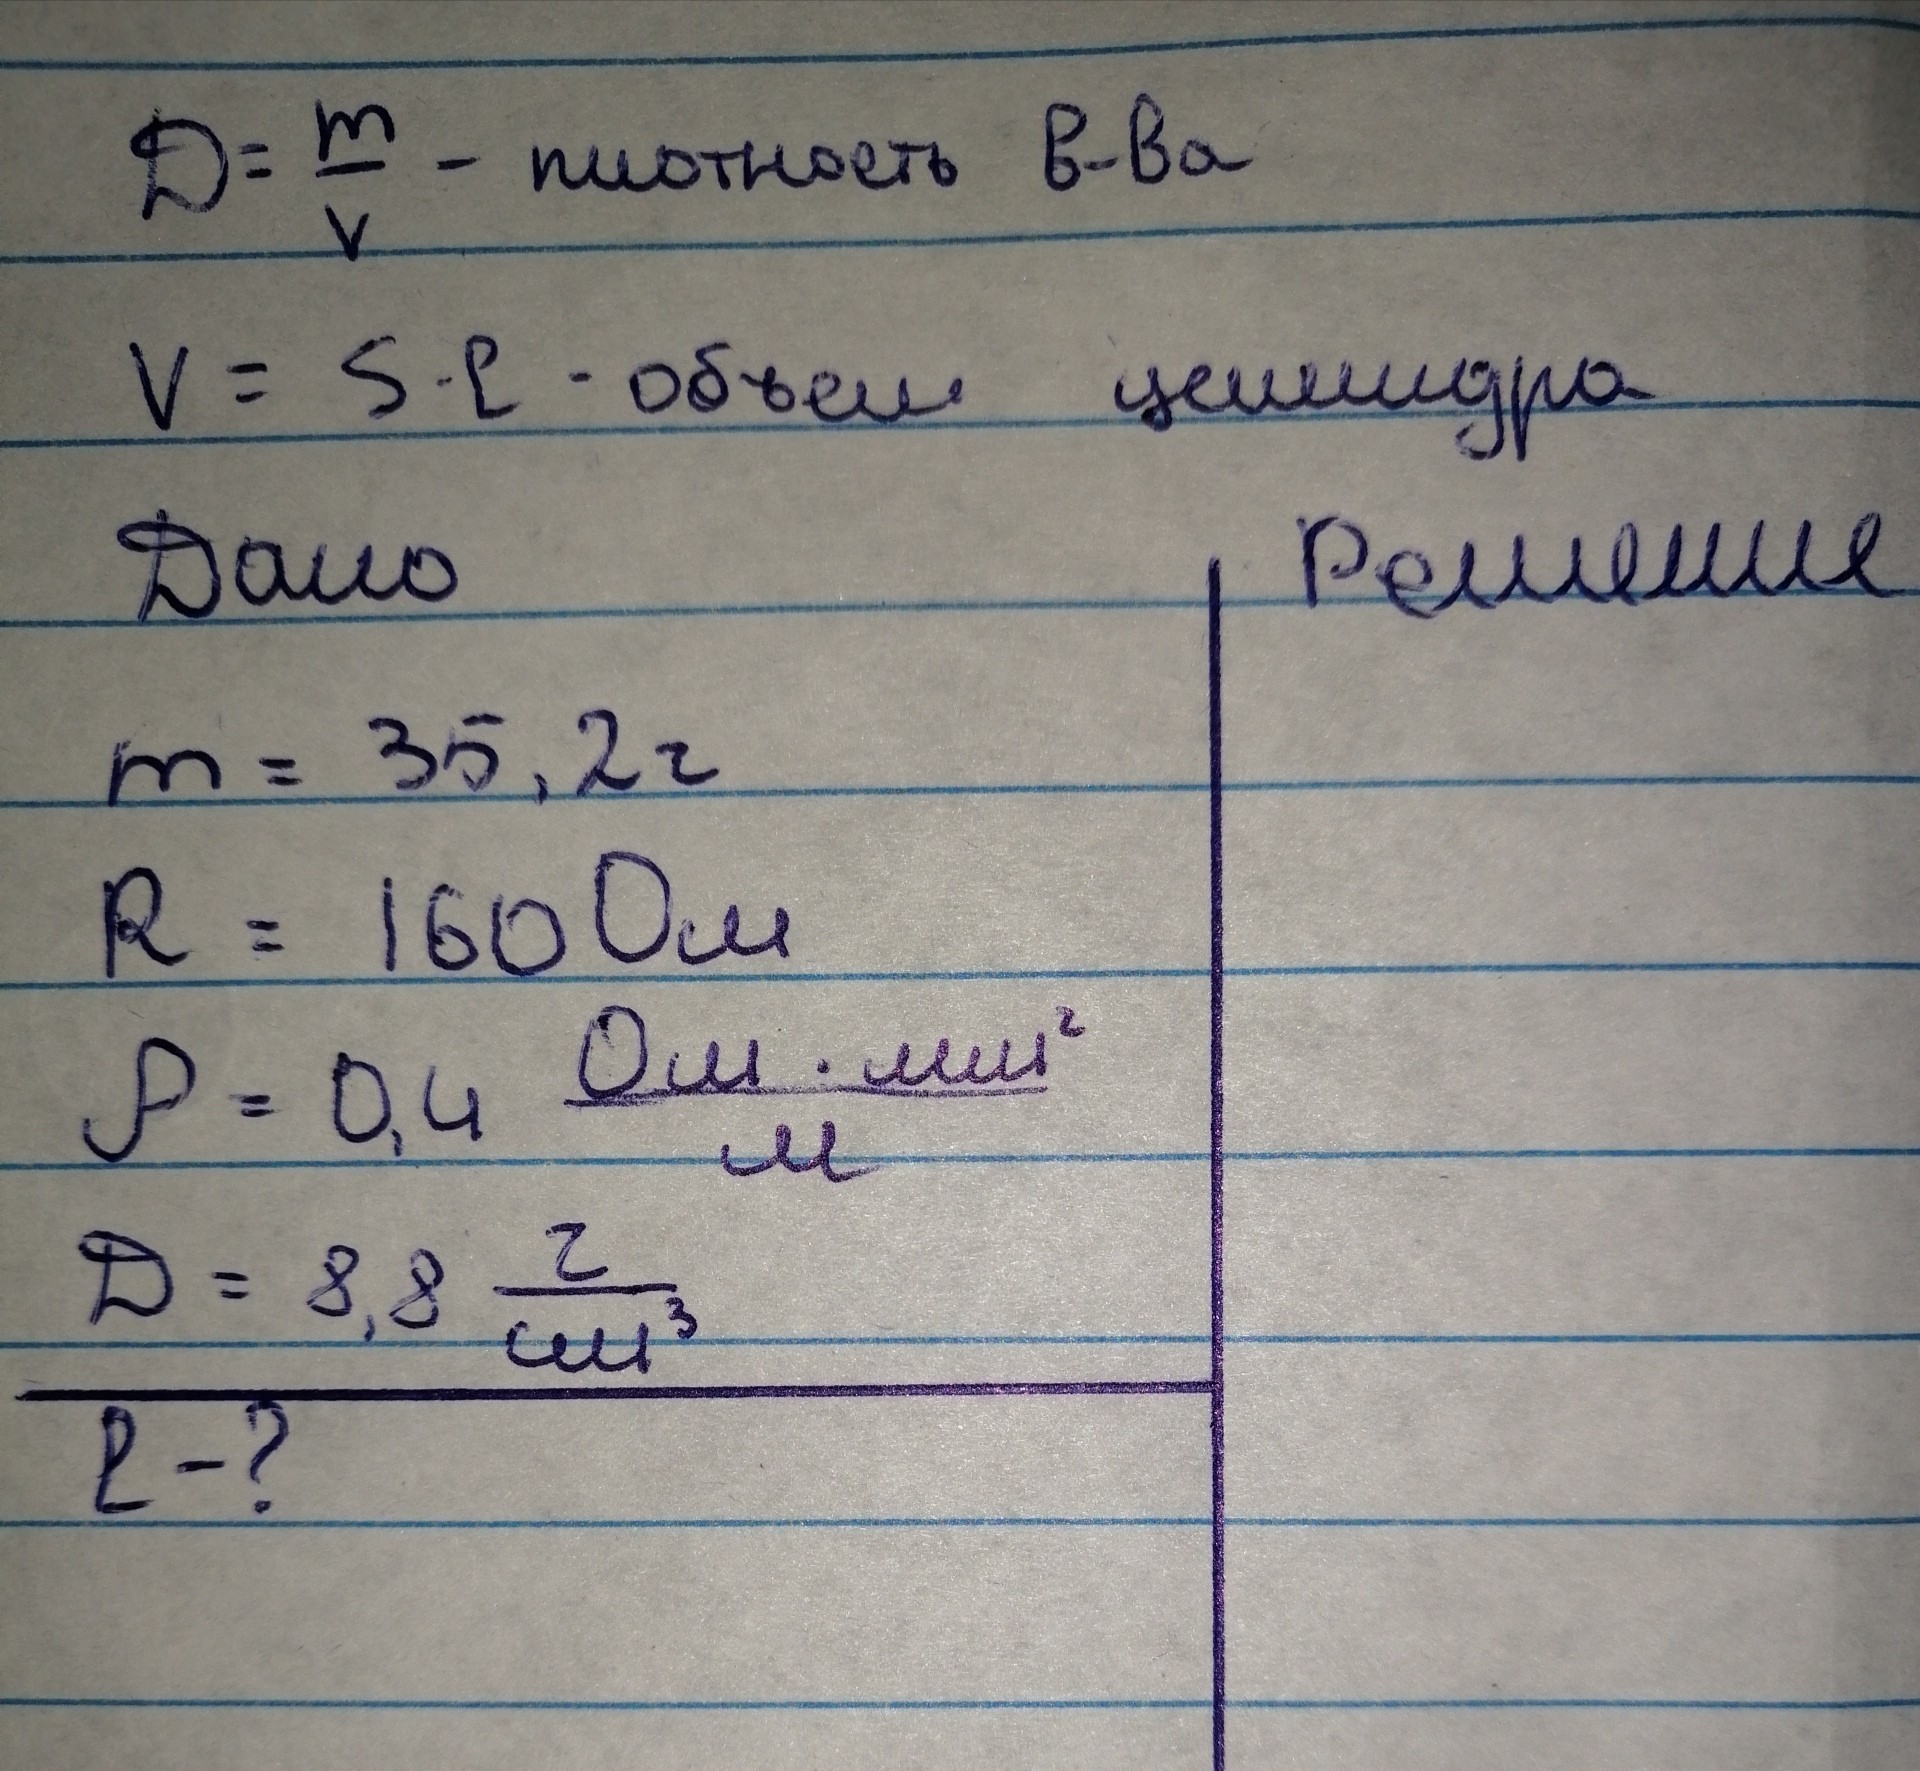 D = m/V - плотность в-ва
V = S·l - объем цилиндра
Дано
Решение
m = 35,2 г
R = 160 Ом
ρ = 0,4 Ом·мм²/м
D = 8,8 г/см³
l - ?